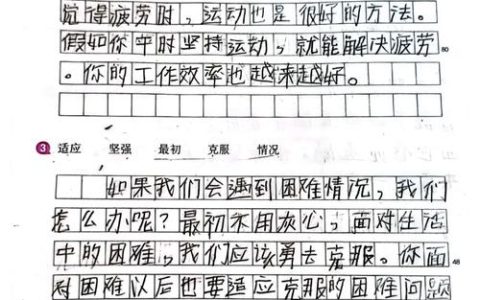 觉得疲劳时，运动也是很好的方法。
假如你平时坚持运动，就能解决疲劳80
。你的工作效率也越来越好。
3 适应 坚强 最初 克服 情况
如果我们会遇到困难情况，我们
怎么办呢？最初不用灰心，面对生活
中的困难，我们应该勇去克服。你面48
对困难以后也要适应克服的困难问题